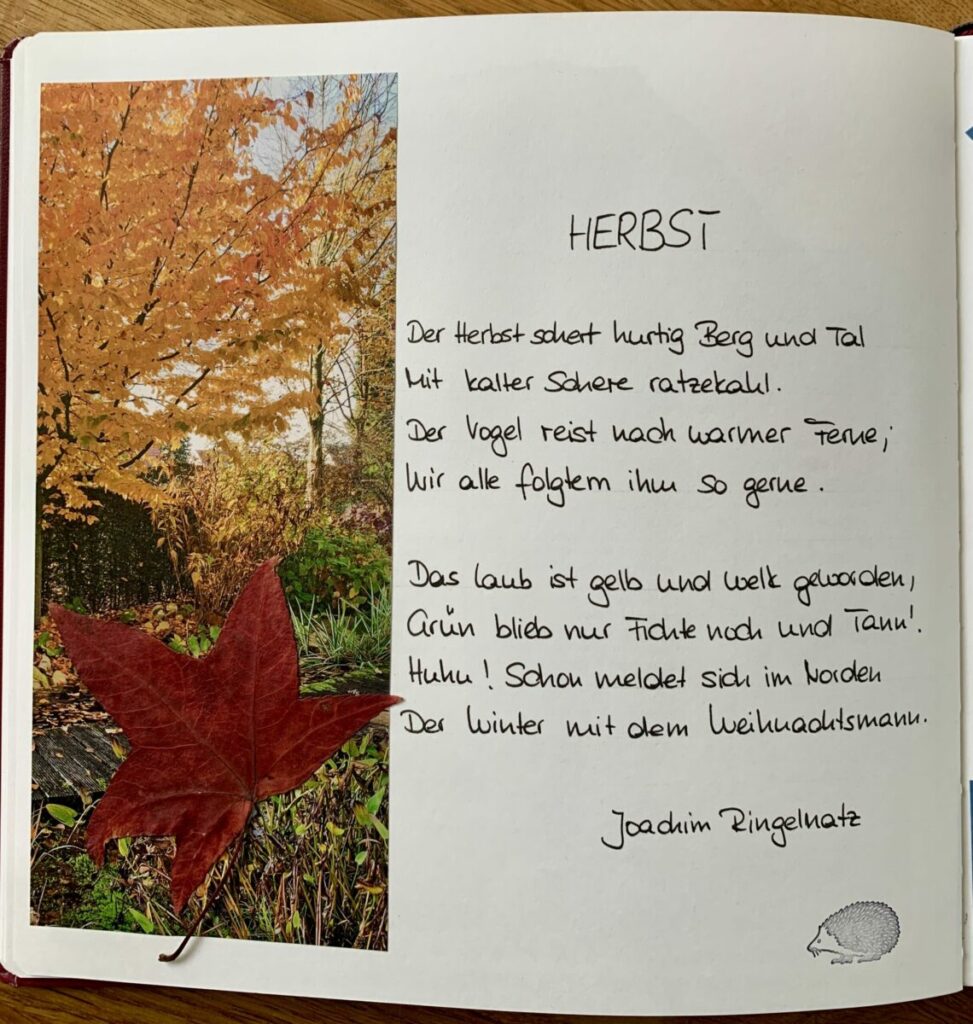 HERBST
Der Herbst schert hurtig Berg und Tal
Mit kalter Schere ratzekahl.
Der Vogel reist nach warmer Ferne;
Wir alle folgtem ihm so gerne.
Das Laub ist gelb und welk geworden,
Grün blieb nur Fichte noch und Tann'.
Huhu! Schon meldet sich im Norden
Der Winter mit dem Weihnachtsmann.
Joachim Ringelnatz